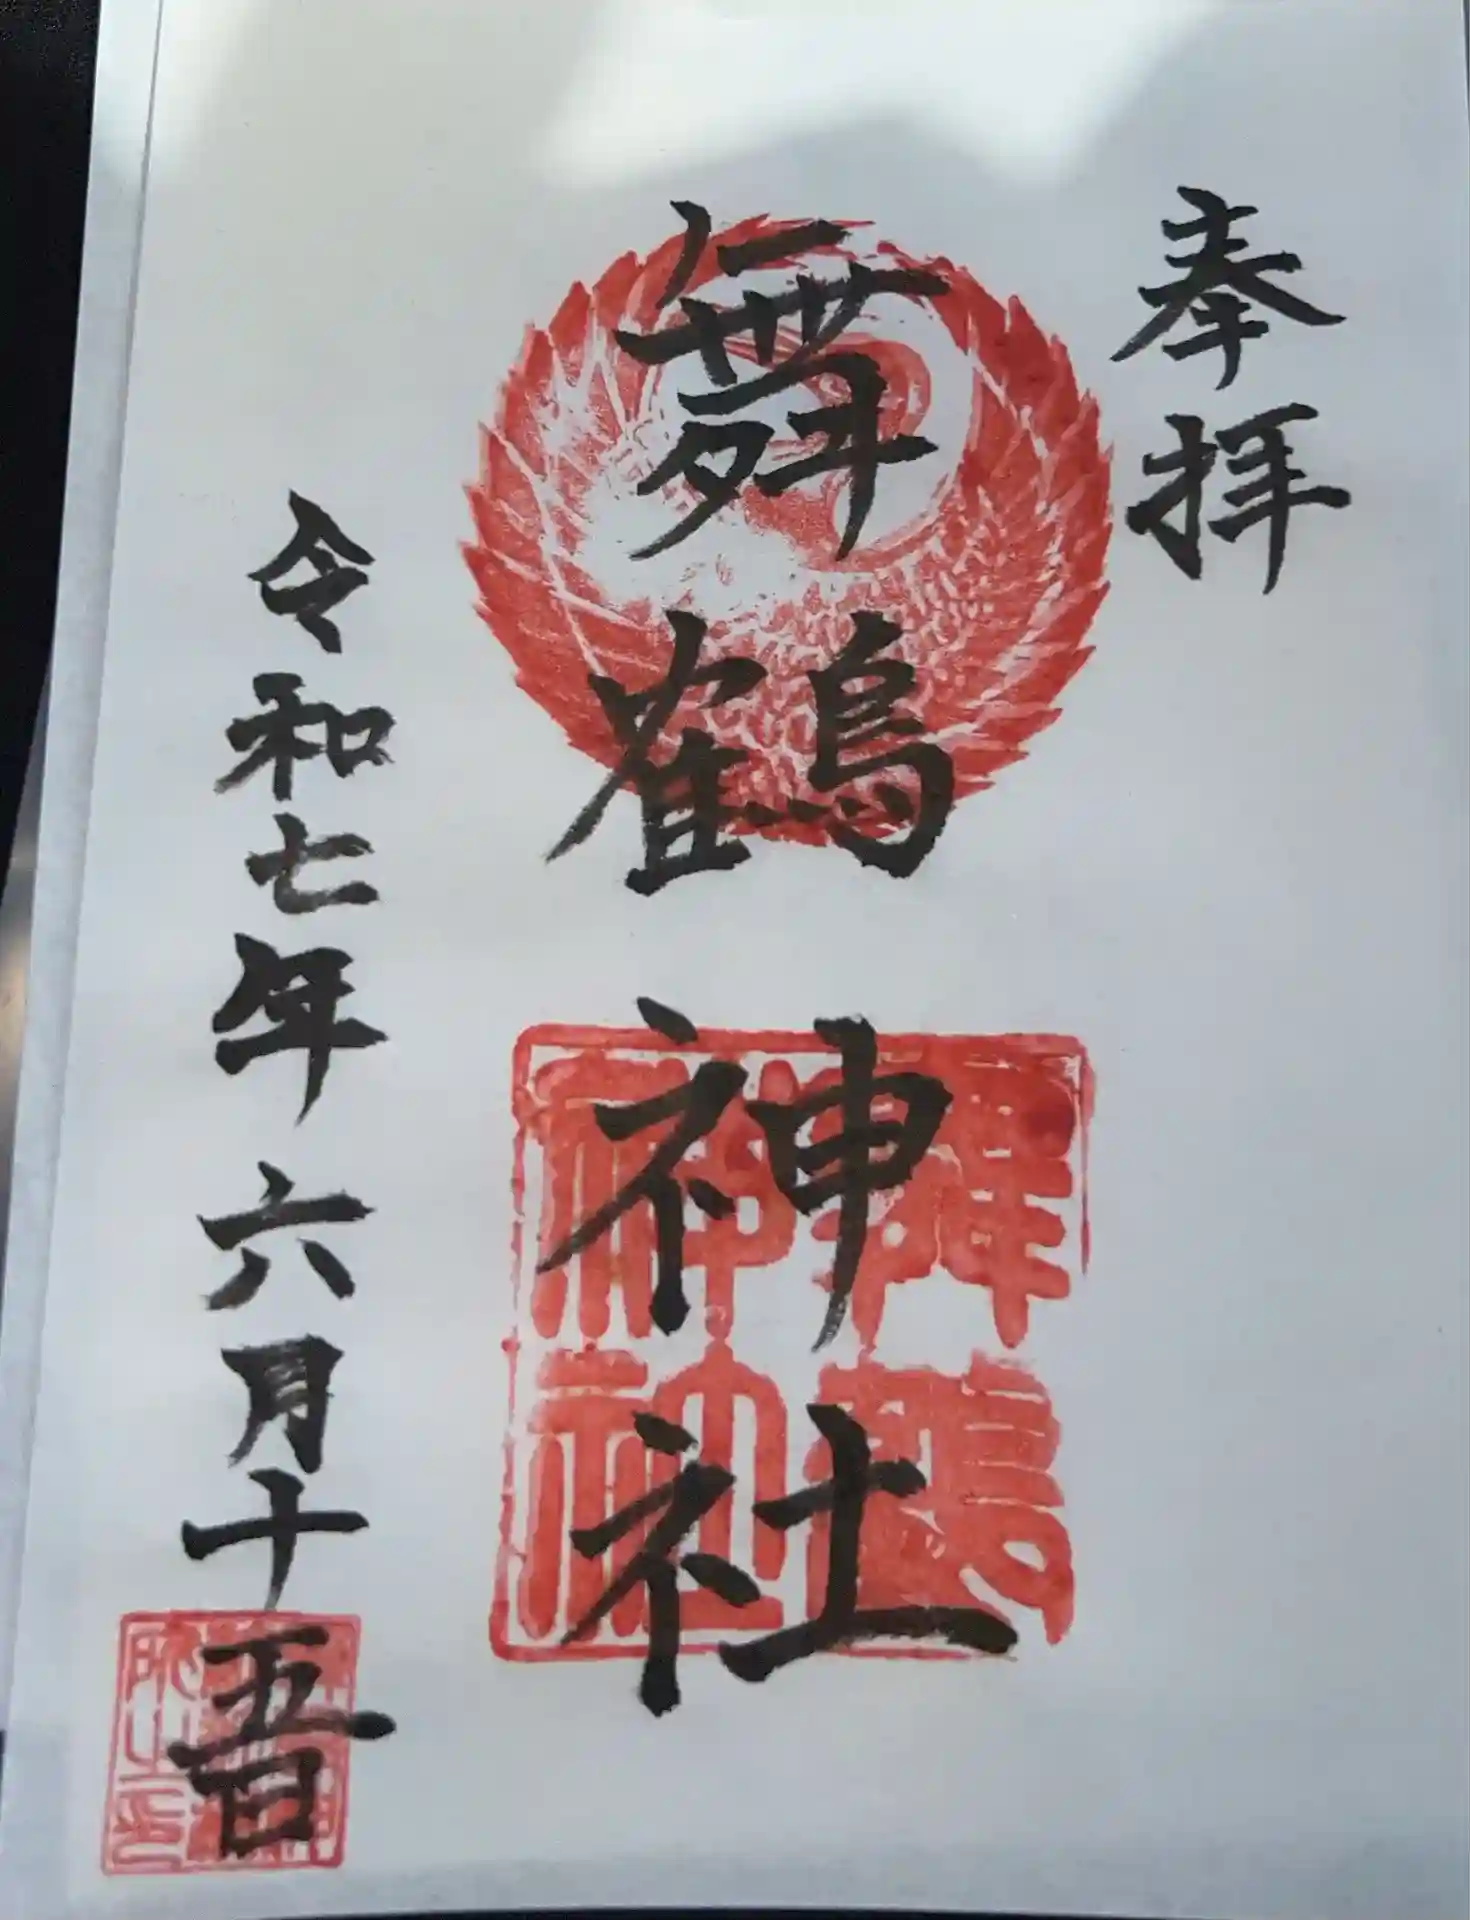 奉拝
舞鶴神社
舞鶴
神社
令和七年六月十五日